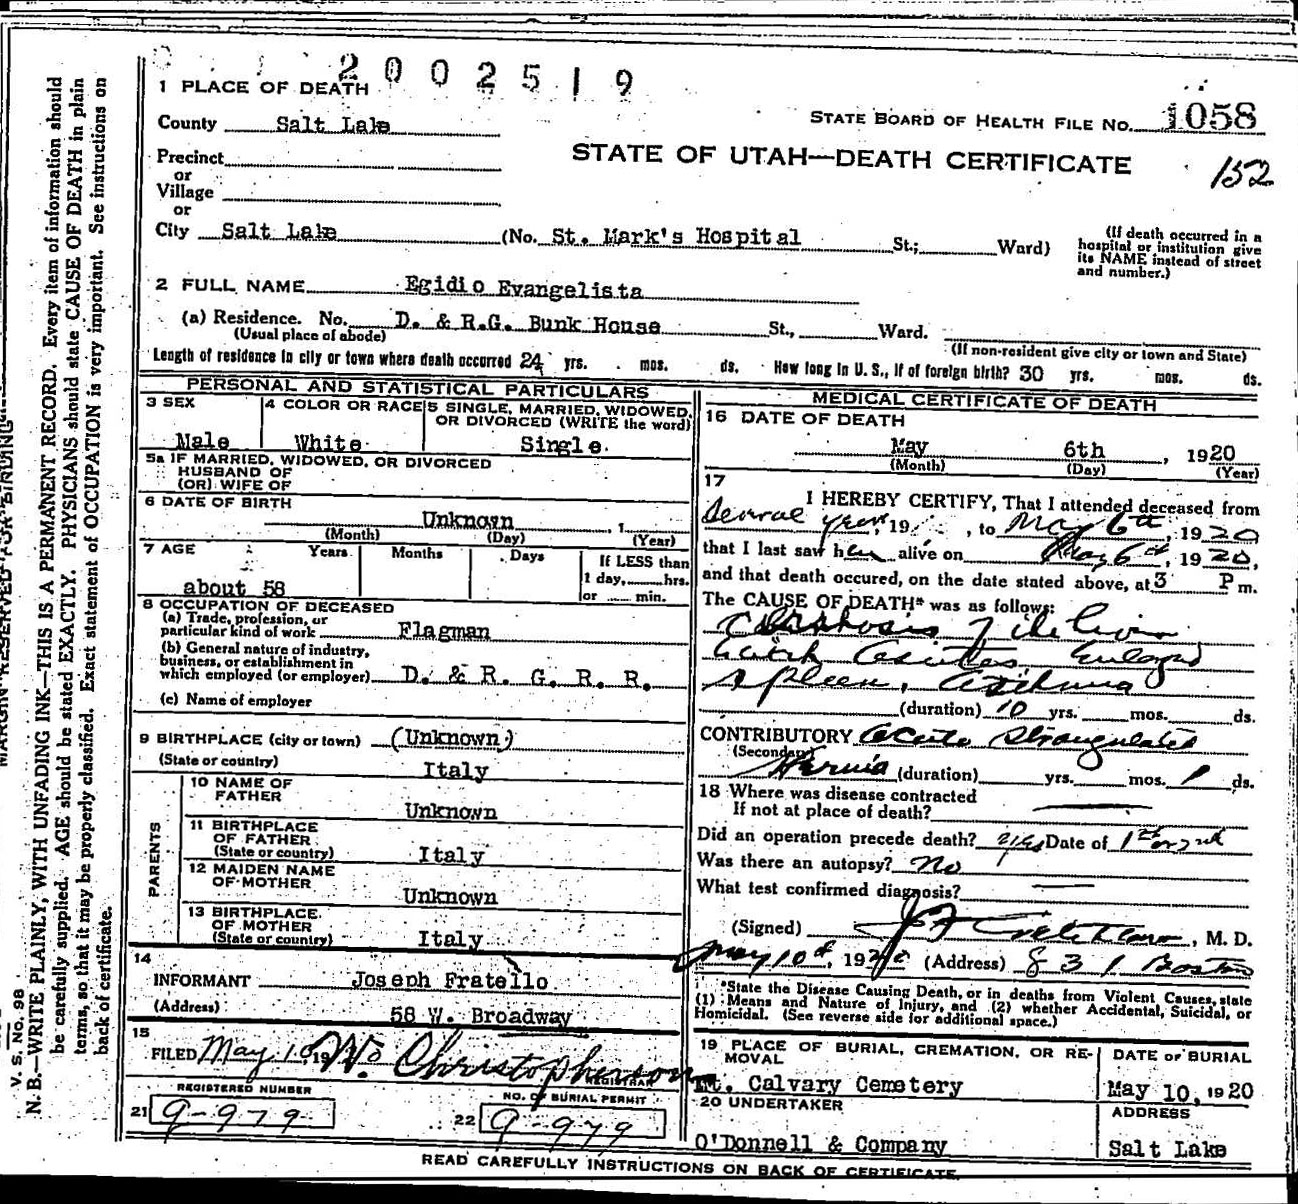 2002519
1 PLACE OF DEATH
STATE BOARD OF HEALTH FILE NO. 1058
County Salt Lake
STATE OF UTAH—DEATH CERTIFICATE
152
Precinct
or
Village
or
City Salt Lake (No. St. Mark's Hospital St.; Ward)
(If death occurred in a
hospital or institution give
its NAME instead of street
and number.)
2 FULL NAME Egidio Evangelista
(a) Residence. No. D. & R.G. Bunk House St., Ward.
(Usual place of abode)
(If non-resident give city or town and State)
Length of residence in city or town where death occurred 24 yrs. mos. ds. How long in U. S., if of foreign birth? 30 yrs. mos. ds.
PERSONAL AND STATISTICAL PARTICULARS
3 SEX
Male
4 COLOR OR RACE
White
5 SINGLE, MARRIED, WIDOWED,
OR DIVORCED (WRITE the word)
Single.
5a IF MARRIED, WIDOWED, OR DIVORCED
HUSBAND OF
(OR) WIFE OF
6 DATE OF BIRTH
Unknown , 1
(Month) (Day) (Year)
7 AGE
Years Months Days
If LESS than
1 day, hrs.
or min.
about 58
8 OCCUPATION OF DECEASED
(a) Trade, profession, or
particular kind of work Flagman
(b) General nature of industry,
business, or establishment in
which employed (or employer) D. & R. G. R. R.
(c) Name of employer
9 BIRTHPLACE (city or town) (Unknown)
(State or country)
Italy
PARENTS
10 NAME OF
FATHER
Unknown
11 BIRTHPLACE
OF FATHER
(State or country) Italy
12 MAIDEN NAME
OF MOTHER
Unknown
13 BIRTHPLACE
OF MOTHER
(State or country) Italy
14
INFORMANT Joseph Fratello
(Address) 58 W. Broadway
15
FILED May 10 1920 W. Christopherson
REGISTRAR
REGISTERED NUMBER
21 9-979
NO. OF BURIAL PERMIT
22 9-979
MEDICAL CERTIFICATE OF DEATH
16 DATE OF DEATH
May 6th , 1920
(Month) (Day) (Year)
17
I HEREBY CERTIFY, That I attended deceased from
several years, 19 , to May 6th, 1920
that I last saw h alive on May 6th, 1920,
and that death occured, on the date stated above, at 3 P m.
The CAUSE OF DEATH* was as follows:
Cirrhosis of the Liver
with Ascites, Enlarged
spleen, Asthma
(duration) 10 yrs. mos. ds.
CONTRIBUTORY Acute Strangulated
(Secondary)
Hernia (duration) yrs. mos. 1 ds.
18 Where was disease contracted
If not at place of death?
Did an operation precede death? yes Date of 1st or 2nd
Was there an autopsy? No
What test confirmed diagnosis?
(Signed) , M. D.
May 10th, 1920 (Address) 831 Boston
*State the Disease Causing Death, or in deaths from Violent Causes, state
(1) Means and Nature of Injury, and (2) whether Accidental, Suicidal, or
Homicidal. (See reverse side for additional space.)
19 PLACE OF BURIAL, CREMATION, OR RE-
MOVAL
Mt. Calvary Cemetery
DATE OF BURIAL
May 10, 1920
20 UNDERTAKER
O'Donnell & Company
ADDRESS
Salt Lake
READ CAREFULLY INSTRUCTIONS ON BACK OF CERTIFICATE.
MARGIN RESERVED FOR BINDING
V. S. NO. 98
N. B.—WRITE PLAINLY, WITH UNFADING INK—THIS IS A PERMANENT RECORD. Every item of information should
be carefully supplied. AGE should be stated EXACTLY. PHYSICIANS should state CAUSE OF DEATH in plain
terms, so that it may be properly classified. Exact statement of OCCUPATION is very important. See instructions on
back of certificate.